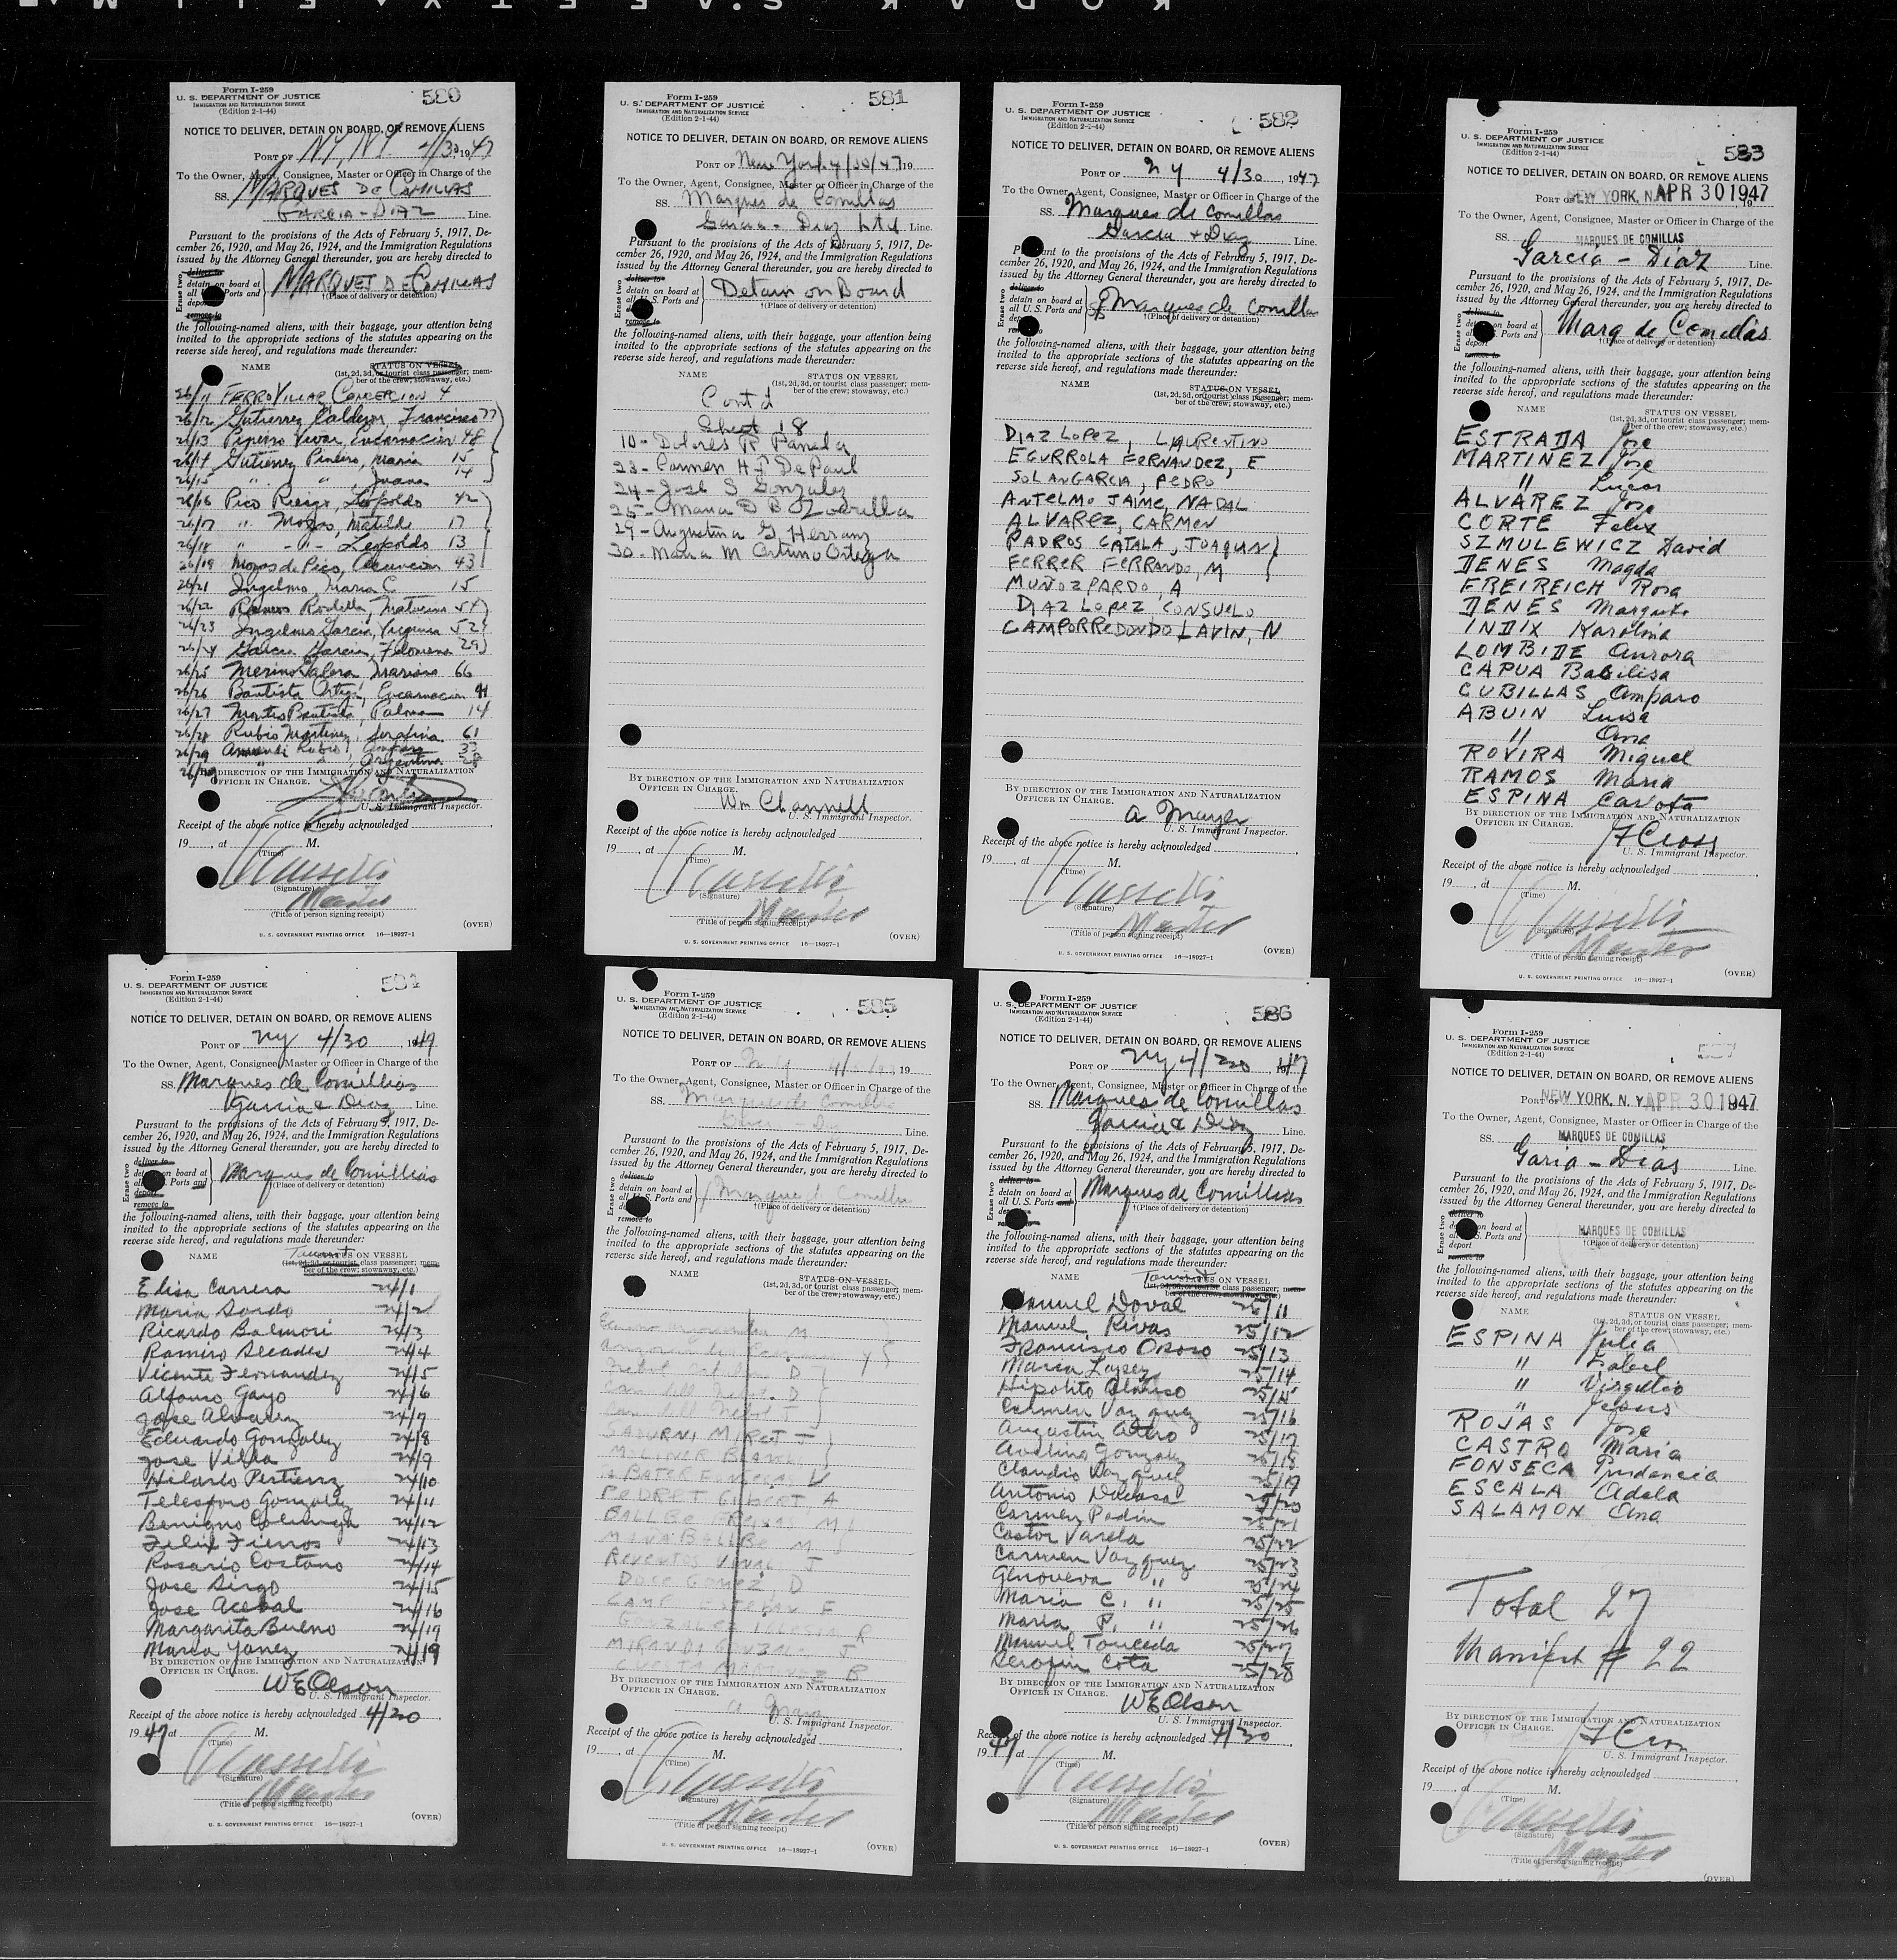 KODAK SAFETY FILM
Form I-259
580
U. S. DEPARTMENT OF JUSTICE
IMMIGRATION AND NATURALIZATION SERVICE
(Edition 2-1-44)
NOTICE TO DELIVER, DETAIN ON BOARD, OR REMOVE ALIENS
PORT OF NY, NY 4/30, 1947
To the Owner, Agent, Consignee, Master or Officer in Charge of the
SS. MARQUES DE COMILLAS
GARCIA-DIAZ Line.
Pursuant to the provisions of the Acts of February 5, 1917, De-
cember 26, 1920, and May 26, 1924, and the Immigration Regulations
issued by the Attorney General thereunder, you are hereby directed to
Erase two
deliver to
detain on board at MARQUES DE COMILLAS
all U. S. Ports and †(Place of delivery or detention)
deport
the following-named aliens, with their baggage, your attention being
invited to the appropriate sections of the statutes appearing on the
reverse side hereof, and regulations made thereunder:
NAME STATUS ON VESSEL
(1st, 2d, 3d, or tourist class passenger; mem-
ber of the crew; stowaway, etc.)
26/11 FERRO VILLAR CONCEPCION 4
26/12 Gutierrez Caldezor, Francisco 77
26/13 Pinero Vivar, Encarnacion 48
26/14 Gutierrez Pineiro, Maria 15
26/15 " " , Juana 14
26/16 Pico Riego, Leopoldo 42
26/17 " Mogas, Matilde 17
26/18 " -"- Leopoldo 13
26/19 Mogas de Pico, Asuncion 43
26/21 Ingelmo, Maria C 15
26/22 Ramos Rodilla, Maturino 54
26/23 Ingelmo Garcia, Virginia 52
26/24 Garcia Garcia, Filomena 29
26/25 Merino Valera, Mariano 66
26/26 Bautista Ortega, Encarnacion 41
26/27 Montes Bautista, Paloma 14
26/28 Rubio Martinez, Serafina 61
26/29 Rubio, Amparo 33
Argentina 28
BY DIRECTION OF THE IMMIGRATION AND NATURALIZATION
OFFICER IN CHARGE.
U. S. Immigrant Inspector.
Receipt of the above notice is hereby acknowledged
19 , at M.
(Time)
(Signature)
Master
(Title of person signing receipt)
(OVER)
U. S. GOVERNMENT PRINTING OFFICE 16—18927-1
Form I-259
581
U. S. DEPARTMENT OF JUSTICE
IMMIGRATION AND NATURALIZATION SERVICE
(Edition 2-1-44)
NOTICE TO DELIVER, DETAIN ON BOARD, OR REMOVE ALIENS
PORT OF New York 4/30/47 19
To the Owner, Agent, Consignee, Master or Officer in Charge of the
SS. Marques de Comillas
Garcia - Diaz Ltd Line.
Pursuant to the provisions of the Acts of February 5, 1917, De-
cember 26, 1920, and May 26, 1924, and the Immigration Regulations
issued by the Attorney General thereunder, you are hereby directed to
Erase two
deliver to
detain on board at Detain on Board
all U. S. Ports and †(Place of delivery or detention)
remove to
the following-named aliens, with their baggage, your attention being
invited to the appropriate sections of the statutes appearing on the
reverse side hereof, and regulations made thereunder:
NAME STATUS ON VESSEL
(1st, 2d, 3d, or tourist class passenger; mem-
ber of the crew; stowaway, etc.)
Cont'd
Sheet 18
10- Dolores R Paneda
23- Carmen H. F. De Paul
24- José S Gonzalez
25- Maria D B Zorrilla
29- Augustina G. Herranz
30- Maria M Ortuno Ortega
BY DIRECTION OF THE IMMIGRATION AND NATURALIZATION
OFFICER IN CHARGE.
Wm Channell
U. S. Immigrant Inspector.
Receipt of the above notice is hereby acknowledged
19 , at M.
(Time)
(Signature)
Master
(Title of person signing receipt)
(OVER)
U. S. GOVERNMENT PRINTING OFFICE 16—18927-1
Form I-259
582
U. S. DEPARTMENT OF JUSTICE
IMMIGRATION AND NATURALIZATION SERVICE
(Edition 2-1-44)
NOTICE TO DELIVER, DETAIN ON BOARD, OR REMOVE ALIENS
PORT OF NY 4/30, 1947
To the Owner, Agent, Consignee, Master or Officer in Charge of the
SS. Marques de Comillas
Garcia + Diaz Line.
Pursuant to the provisions of the Acts of February 5, 1917, De-
cember 26, 1920, and May 26, 1924, and the Immigration Regulations
issued by the Attorney General thereunder, you are hereby directed to
Erase two
deliver to
detain on board at SS Marques de Comillas
all U. S. Ports and †(Place of delivery or detention)
the following-named aliens, with their baggage, your attention being
invited to the appropriate sections of the statutes appearing on the
reverse side hereof, and regulations made thereunder:
NAME STATUS ON VESSEL
(1st, 2d, 3d, or tourist class passenger; mem-
ber of the crew; stowaway, etc.)
DIAZ LOPEZ, LAURENTINO
EGURROLA FERNANDEZ, E
SOLANGARCIA, PEDRO
ANTELMO JAIME, NADAL
ALVAREZ, CARMEN
PADROS CATALA, JOAQUIN
FERRER FERRANDO, M
MUÑOZ PARDO, A
DIAZ LOPEZ CONSUELO
CAMPORREDONDO LAVIN, N
BY DIRECTION OF THE IMMIGRATION AND NATURALIZATION
OFFICER IN CHARGE.
A Mayer
U. S. Immigrant Inspector.
Receipt of the above notice is hereby acknowledged
19 , at M.
(Time)
(Signature)
Master
(Title of person signing receipt)
(OVER)
U. S. GOVERNMENT PRINTING OFFICE 16—18927-1
Form I-259
583
U. S. DEPARTMENT OF JUSTICE
IMMIGRATION AND NATURALIZATION SERVICE
(Edition 2-1-44)
NOTICE TO DELIVER, DETAIN ON BOARD, OR REMOVE ALIENS
PORT OF NEW YORK, N. APR 30 1947
To the Owner, Agent, Consignee, Master or Officer in Charge of the
SS. MARQUES DE COMILLAS
Garcia - Diaz Line.
Pursuant to the provisions of the Acts of February 5, 1917, De-
cember 26, 1920, and May 26, 1924, and the Immigration Regulations
issued by the Attorney General thereunder, you are hereby directed to
Erase two
deliver to
detain on board at Marq de Comillas
all U. S. Ports and †(Place of delivery or detention)
deport
remove to
the following-named aliens, with their baggage, your attention being
invited to the appropriate sections of the statutes appearing on the
reverse side hereof, and regulations made thereunder:
NAME STATUS ON VESSEL
(1st, 2d, 3d, or tourist class passenger; mem-
ber of the crew; stowaway, etc.)
ESTRADA Jose
MARTINEZ Jose
" Lucas
ALVAREZ Jose
CORTE Felix
SZMULEWICZ David
DENES Magda
FREIREICH Rosa
DENES Margarita
INDIX Karolina
LOMBIDE Aurora
CAPUA Basilisa
CUBILLAS Amparo
ABUIN Luisa
" Ana
ROVIRA Miguel
RAMOS Maria
ESPINA Carlota
BY DIRECTION OF THE IMMIGRATION AND NATURALIZATION
OFFICER IN CHARGE.
F Cross
U. S. Immigrant Inspector.
Receipt of the above notice is hereby acknowledged
19 , at M.
(Time)
(Signature)
Master
(Title of person signing receipt)
(OVER)
U. S. GOVERNMENT PRINTING OFFICE 16—18927-1
Form I-259
584
U. S. DEPARTMENT OF JUSTICE
IMMIGRATION AND NATURALIZATION SERVICE
(Edition 2-1-44)
NOTICE TO DELIVER, DETAIN ON BOARD, OR REMOVE ALIENS
PORT OF NY 4/30 1947
To the Owner, Agent, Consignee, Master or Officer in Charge of the
SS. Marques de Comillias
Garcia & Diaz Line.
Pursuant to the provisions of the Acts of February 5, 1917, De-
cember 26, 1920, and May 26, 1924, and the Immigration Regulations
issued by the Attorney General thereunder, you are hereby directed to
Erase two
deliver to
detain on board at Marques de Comillias
all U. S. Ports and (Place of delivery or detention)
deport
remove to
the following-named aliens, with their baggage, your attention being
invited to the appropriate sections of the statutes appearing on the
reverse side hereof, and regulations made thereunder:
NAME Tourist STATUS ON VESSEL
(1st, 2d, 3d, or tourist class passenger; mem-
ber of the crew; stowaway, etc.)
Elisa Carrera 24/1
Maria Sordo 24/2
Ricardo Balmori 24/3
Ramiro Secades 24/4
Vicente Fernandez 24/5
Alfonso Gayo 24/6
Jose Alvarez 24/7
Eduardo Gonzalez 24/8
Jose Villa 24/9
Hilario Pertierra 24/10
Telesforo Gonzalez 24/11
Benigno Colunga 24/12
Felix Fierros 24/13
Rosario Costano 24/14
Jose Sirgo 24/15
Jose Acebal 24/16
Margarita Bueno 24/17
Maria Yanez 24/19
BY DIRECTION OF THE IMMIGRATION AND NATURALIZATION
OFFICER IN CHARGE.
WE Olson
U. S. Immigrant Inspector.
Receipt of the above notice is hereby acknowledged 4/30
1947 at M.
(Time)
(Signature)
Master
(Title of person signing receipt)
(OVER)
U. S. GOVERNMENT PRINTING OFFICE 16—18927-1
Form I-259
585
U. S. DEPARTMENT OF JUSTICE
IMMIGRATION AND NATURALIZATION SERVICE
(Edition 2-1-44)
NOTICE TO DELIVER, DETAIN ON BOARD, OR REMOVE ALIENS
PORT OF N Y 19
To the Owner, Agent, Consignee, Master or Officer in Charge of the
SS. Marques de Comillas
Line.
Pursuant to the provisions of the Acts of February 5, 1917, De-
cember 26, 1920, and May 26, 1924, and the Immigration Regulations
issued by the Attorney General thereunder, you are hereby directed to
Erase two
deliver to
detain on board at Marques de Comillas
all U. S. Ports and †(Place of delivery or detention)
remove to
the following-named aliens, with their baggage, your attention being
invited to the appropriate sections of the statutes appearing on the
reverse side hereof, and regulations made thereunder:
NAME STATUS ON VESSEL
(1st, 2d, 3d, or tourist class passenger; mem-
ber of the crew; stowaway, etc.)
SADURNI MIRET J
MOLINER BLANCH
PEDRET GIBERT A
BALLBE M
MANA BALLBE M
REVENTOS VIDAL J
DOCE GOMEZ, D
CAMP ESTEBAN E
GONZALEZ IGLESIA R
MIRANDI GONZAL J
CUESTA MARTINEZ B
BY DIRECTION OF THE IMMIGRATION AND NATURALIZATION
OFFICER IN CHARGE.
U. S. Immigrant Inspector.
Receipt of the above notice is hereby acknowledged
19 , at M.
(Time)
(Signature)
Master
(Title of person signing receipt)
(OVER)
U. S. GOVERNMENT PRINTING OFFICE 16—18927-1
Form I-259
586
U. S. DEPARTMENT OF JUSTICE
IMMIGRATION AND NATURALIZATION SERVICE
(Edition 2-1-44)
NOTICE TO DELIVER, DETAIN ON BOARD, OR REMOVE ALIENS
PORT OF NY 4/30 1947
To the Owner, Agent, Consignee, Master or Officer in Charge of the
SS. Marques de Comillas
Garcia & Diaz Line.
Pursuant to the provisions of the Acts of February 5, 1917, De-
cember 26, 1920, and May 26, 1924, and the Immigration Regulations
issued by the Attorney General thereunder, you are hereby directed to
Erase two
deliver to
detain on board at Marques de Comillias
all U. S. Ports and †(Place of delivery or detention)
remove to
the following-named aliens, with their baggage, your attention being
invited to the appropriate sections of the statutes appearing on the
reverse side hereof, and regulations made thereunder:
NAME Tourist STATUS ON VESSEL
(1st, 2d, 3d, or tourist class passenger; mem-
ber of the crew; stowaway, etc.)
Manuel Doval 25/11
Manuel Rivas 25/12
Francisco Oroso 25/13
Maria Lopez 25/14
Hipolito Alonso 25/15
Carmen Vazquez 25/16
Augustin Otero 25/17
Avelino Gonzalez 25/18
Claudio Vazquez 25/19
Antonio Dacasa 25/20
Carmen Padin 25/21
Castor Varela 25/22
Carmen Vazquez 25/23
Genoveva " 25/24
Maria C. " 25/25
Maria P. " 25/26
Manuel Touceda 25/27
Serafin Cota 25/28
BY DIRECTION OF THE IMMIGRATION AND NATURALIZATION
OFFICER IN CHARGE.
WE Olson
U. S. Immigrant Inspector.
Receipt of the above notice is hereby acknowledged 4/30
1947 at M.
(Time)
(Signature)
Master
(Title of person signing receipt)
(OVER)
U. S. GOVERNMENT PRINTING OFFICE 16—18927-1
Form I-259
587
U. S. DEPARTMENT OF JUSTICE
IMMIGRATION AND NATURALIZATION SERVICE
(Edition 2-1-44)
NOTICE TO DELIVER, DETAIN ON BOARD, OR REMOVE ALIENS
PORT OF NEW YORK, N. Y. APR 30 1947
To the Owner, Agent, Consignee, Master or Officer in Charge of the
SS. MARQUES DE COMILLAS
Garia - Dias Line.
Pursuant to the provisions of the Acts of February 5, 1917, De-
cember 26, 1920, and May 26, 1924, and the Immigration Regulations
issued by the Attorney General thereunder, you are hereby directed to
Erase two
deliver to
detain on board at MARQUES DE COMILLAS
all U. S. Ports and †(Place of delivery or detention)
deport
remove to
the following-named aliens, with their baggage, your attention being
invited to the appropriate sections of the statutes appearing on the
reverse side hereof, and regulations made thereunder:
NAME STATUS ON VESSEL
(1st, 2d, 3d, or tourist class passenger; mem-
ber of the crew; stowaway, etc.)
ESPINA Julia
" Isabel
" Virgilio
" Jesus
ROJAS Jose
CASTRO Maria
FONSECA Prudencia
ESCALA Adela
SALAMON Ana
Total 27
Manifest # 22
BY DIRECTION OF THE IMMIGRATION AND NATURALIZATION
OFFICER IN CHARGE.
F Cross
U. S. Immigrant Inspector.
Receipt of the above notice is hereby acknowledged
19 , at M.
(Time)
(Signature)
Master
(Title of person signing receipt)
(OVER)